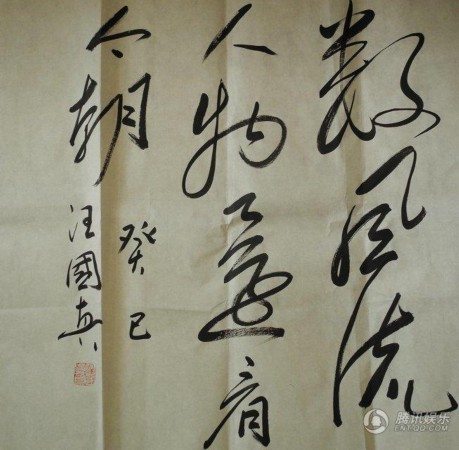 数風流
人物還看
今朝
癸巳
汪國真
腾讯娱乐
ENT.QQ.COM